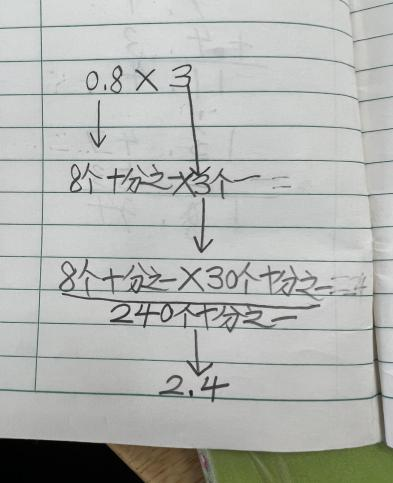 0.8×3
8个十分之一×3个一=
8个十分之一×30个十分之一
240个十分之一
2.4